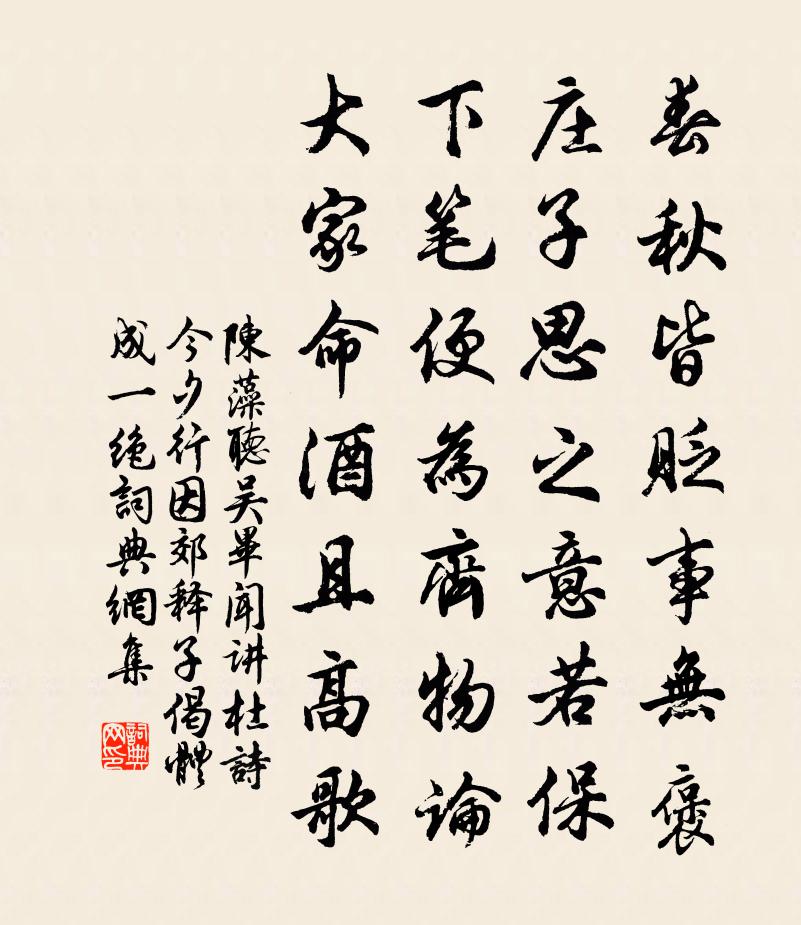 春秋皆貶事無褒
庄子思之意若保
下笔便為齊物論
大家命酒且高歌
陳藻聽吴畢闻讲杜詩
今夕行因郊释子偈體
成一绝詞典網集
詞典網印